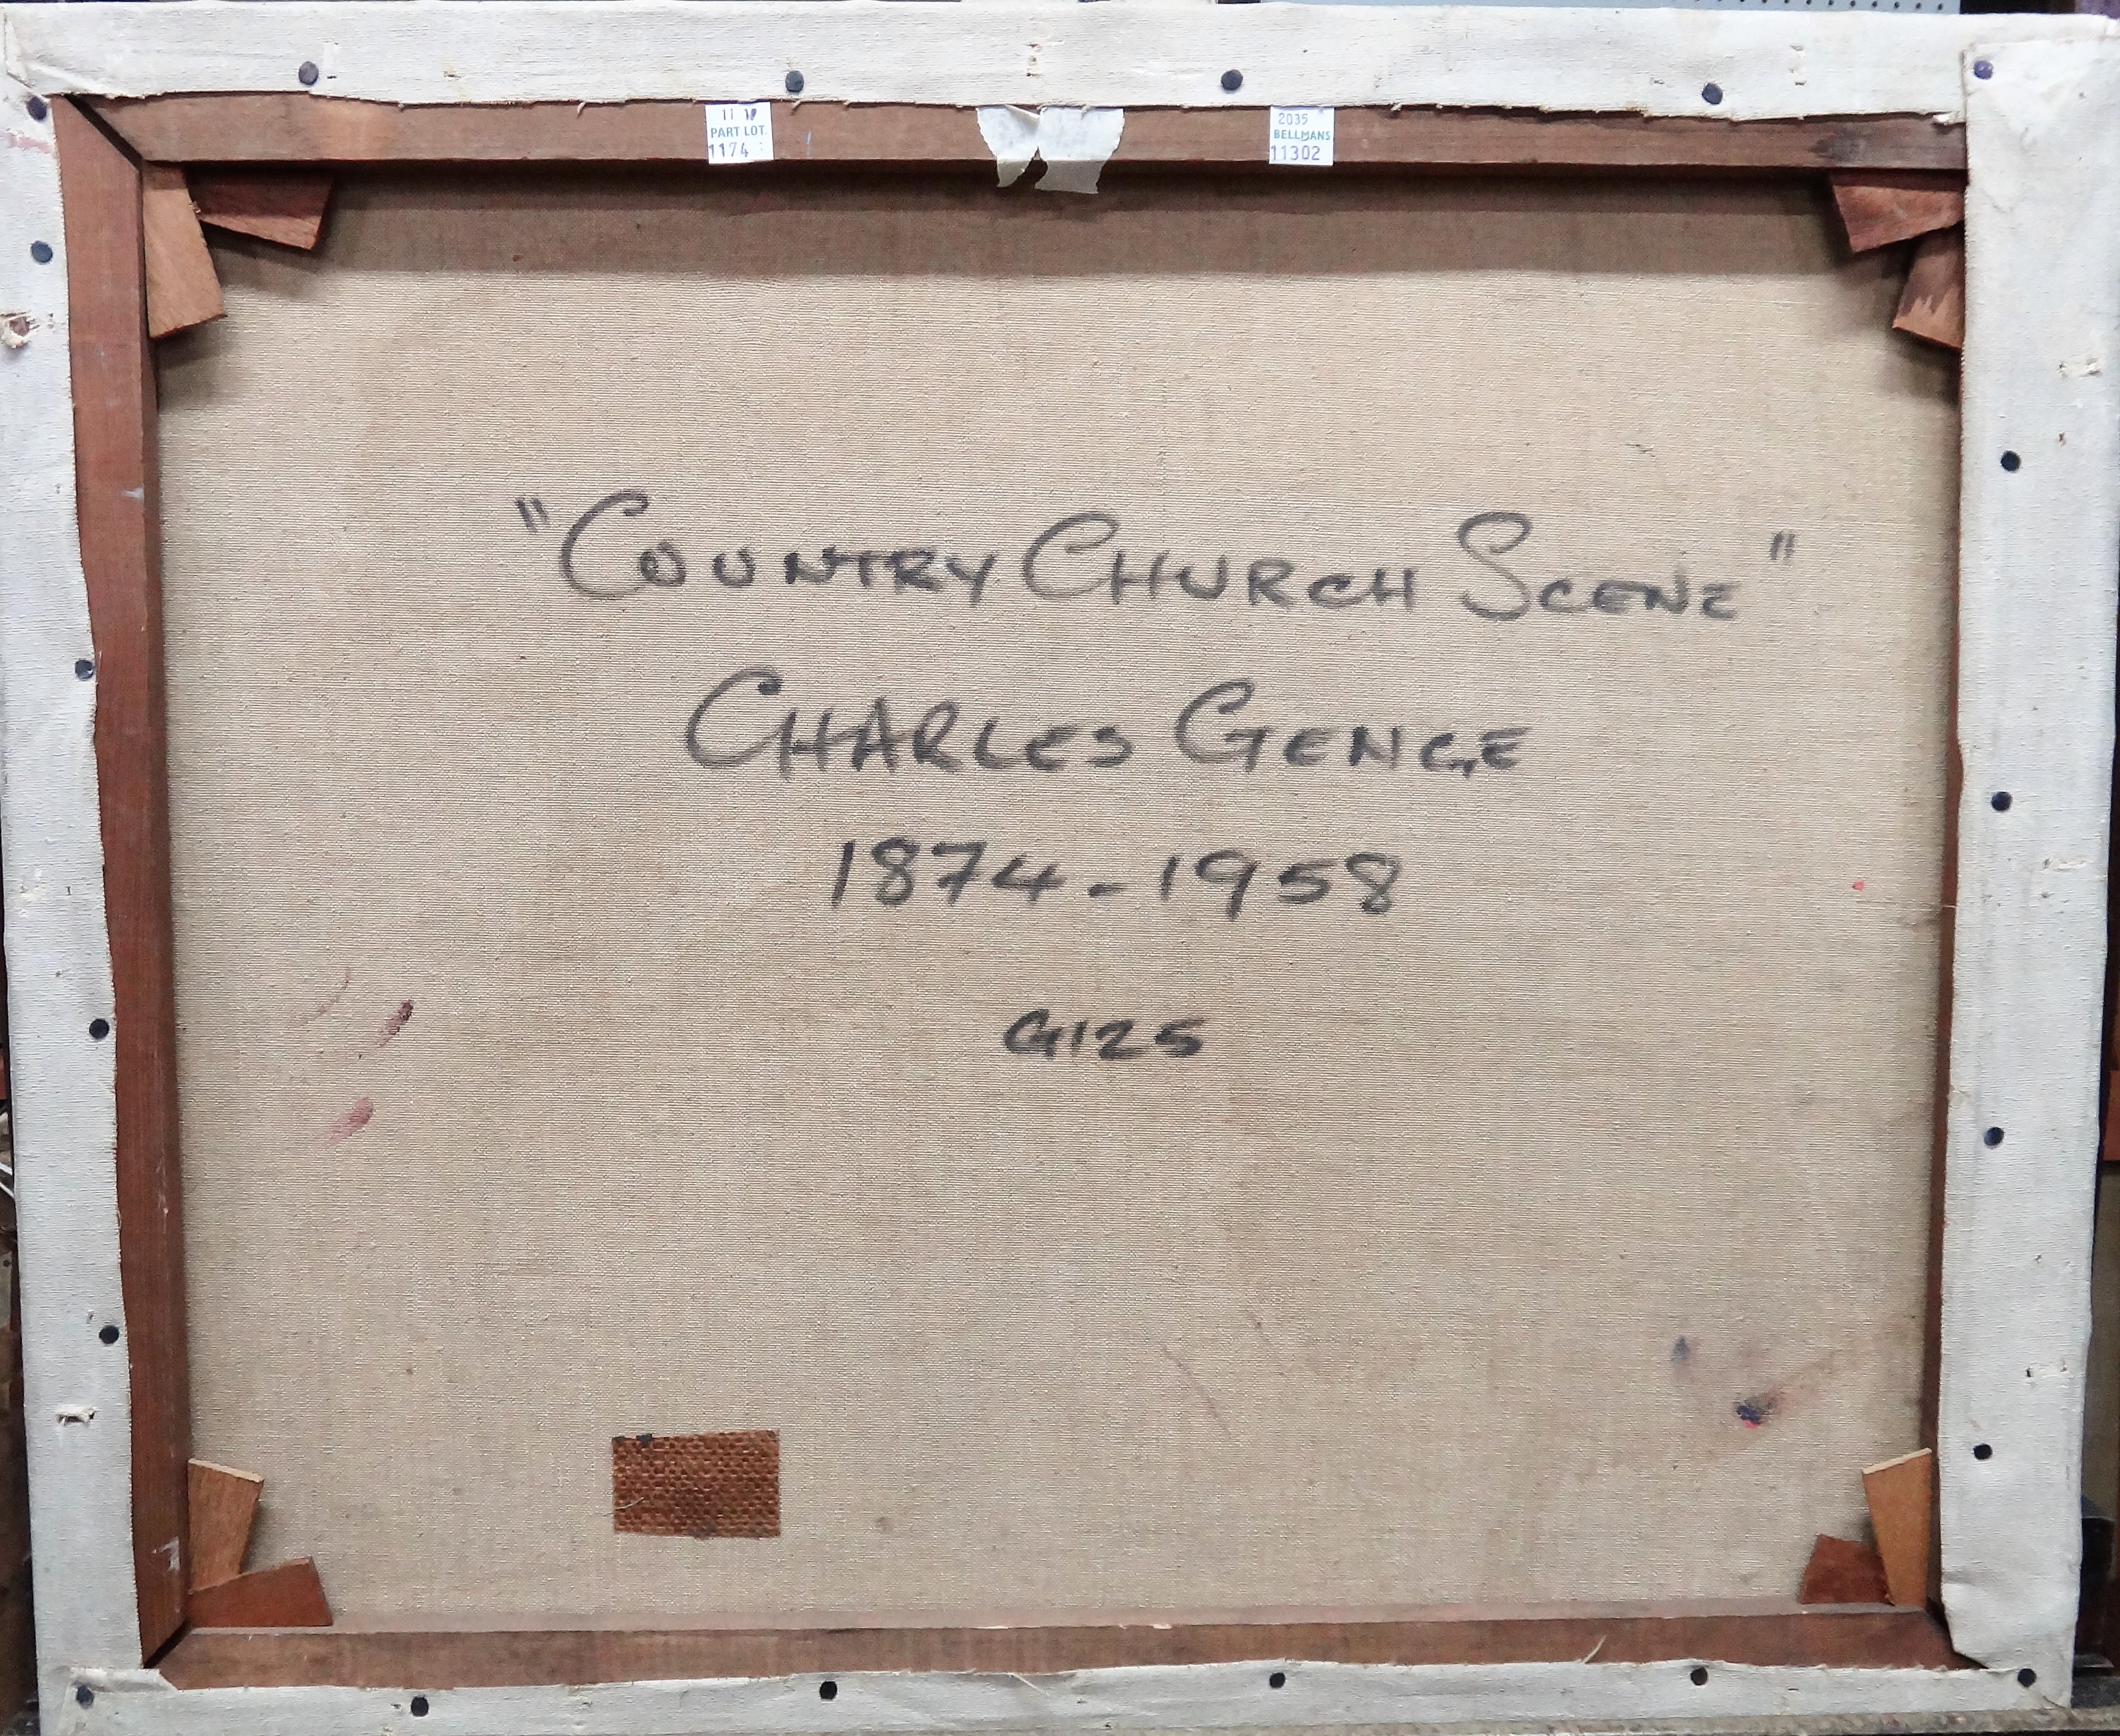 PART LOT
1174
2035
BELLMANS
11302
"COUNTRY CHURCH SCENE"
CHARLES GENGE
1874-1958
G125